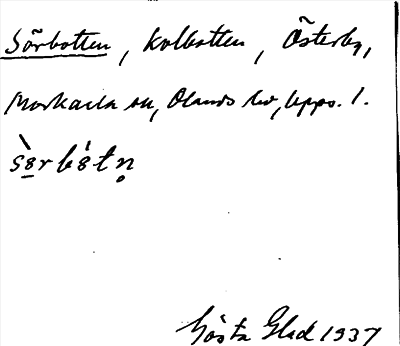 Sörbotten, kolbotten, Österby,
Morkarla sn, Olands hd, Upps. l.
sèrbòtn̥
Gösta Glad 1937